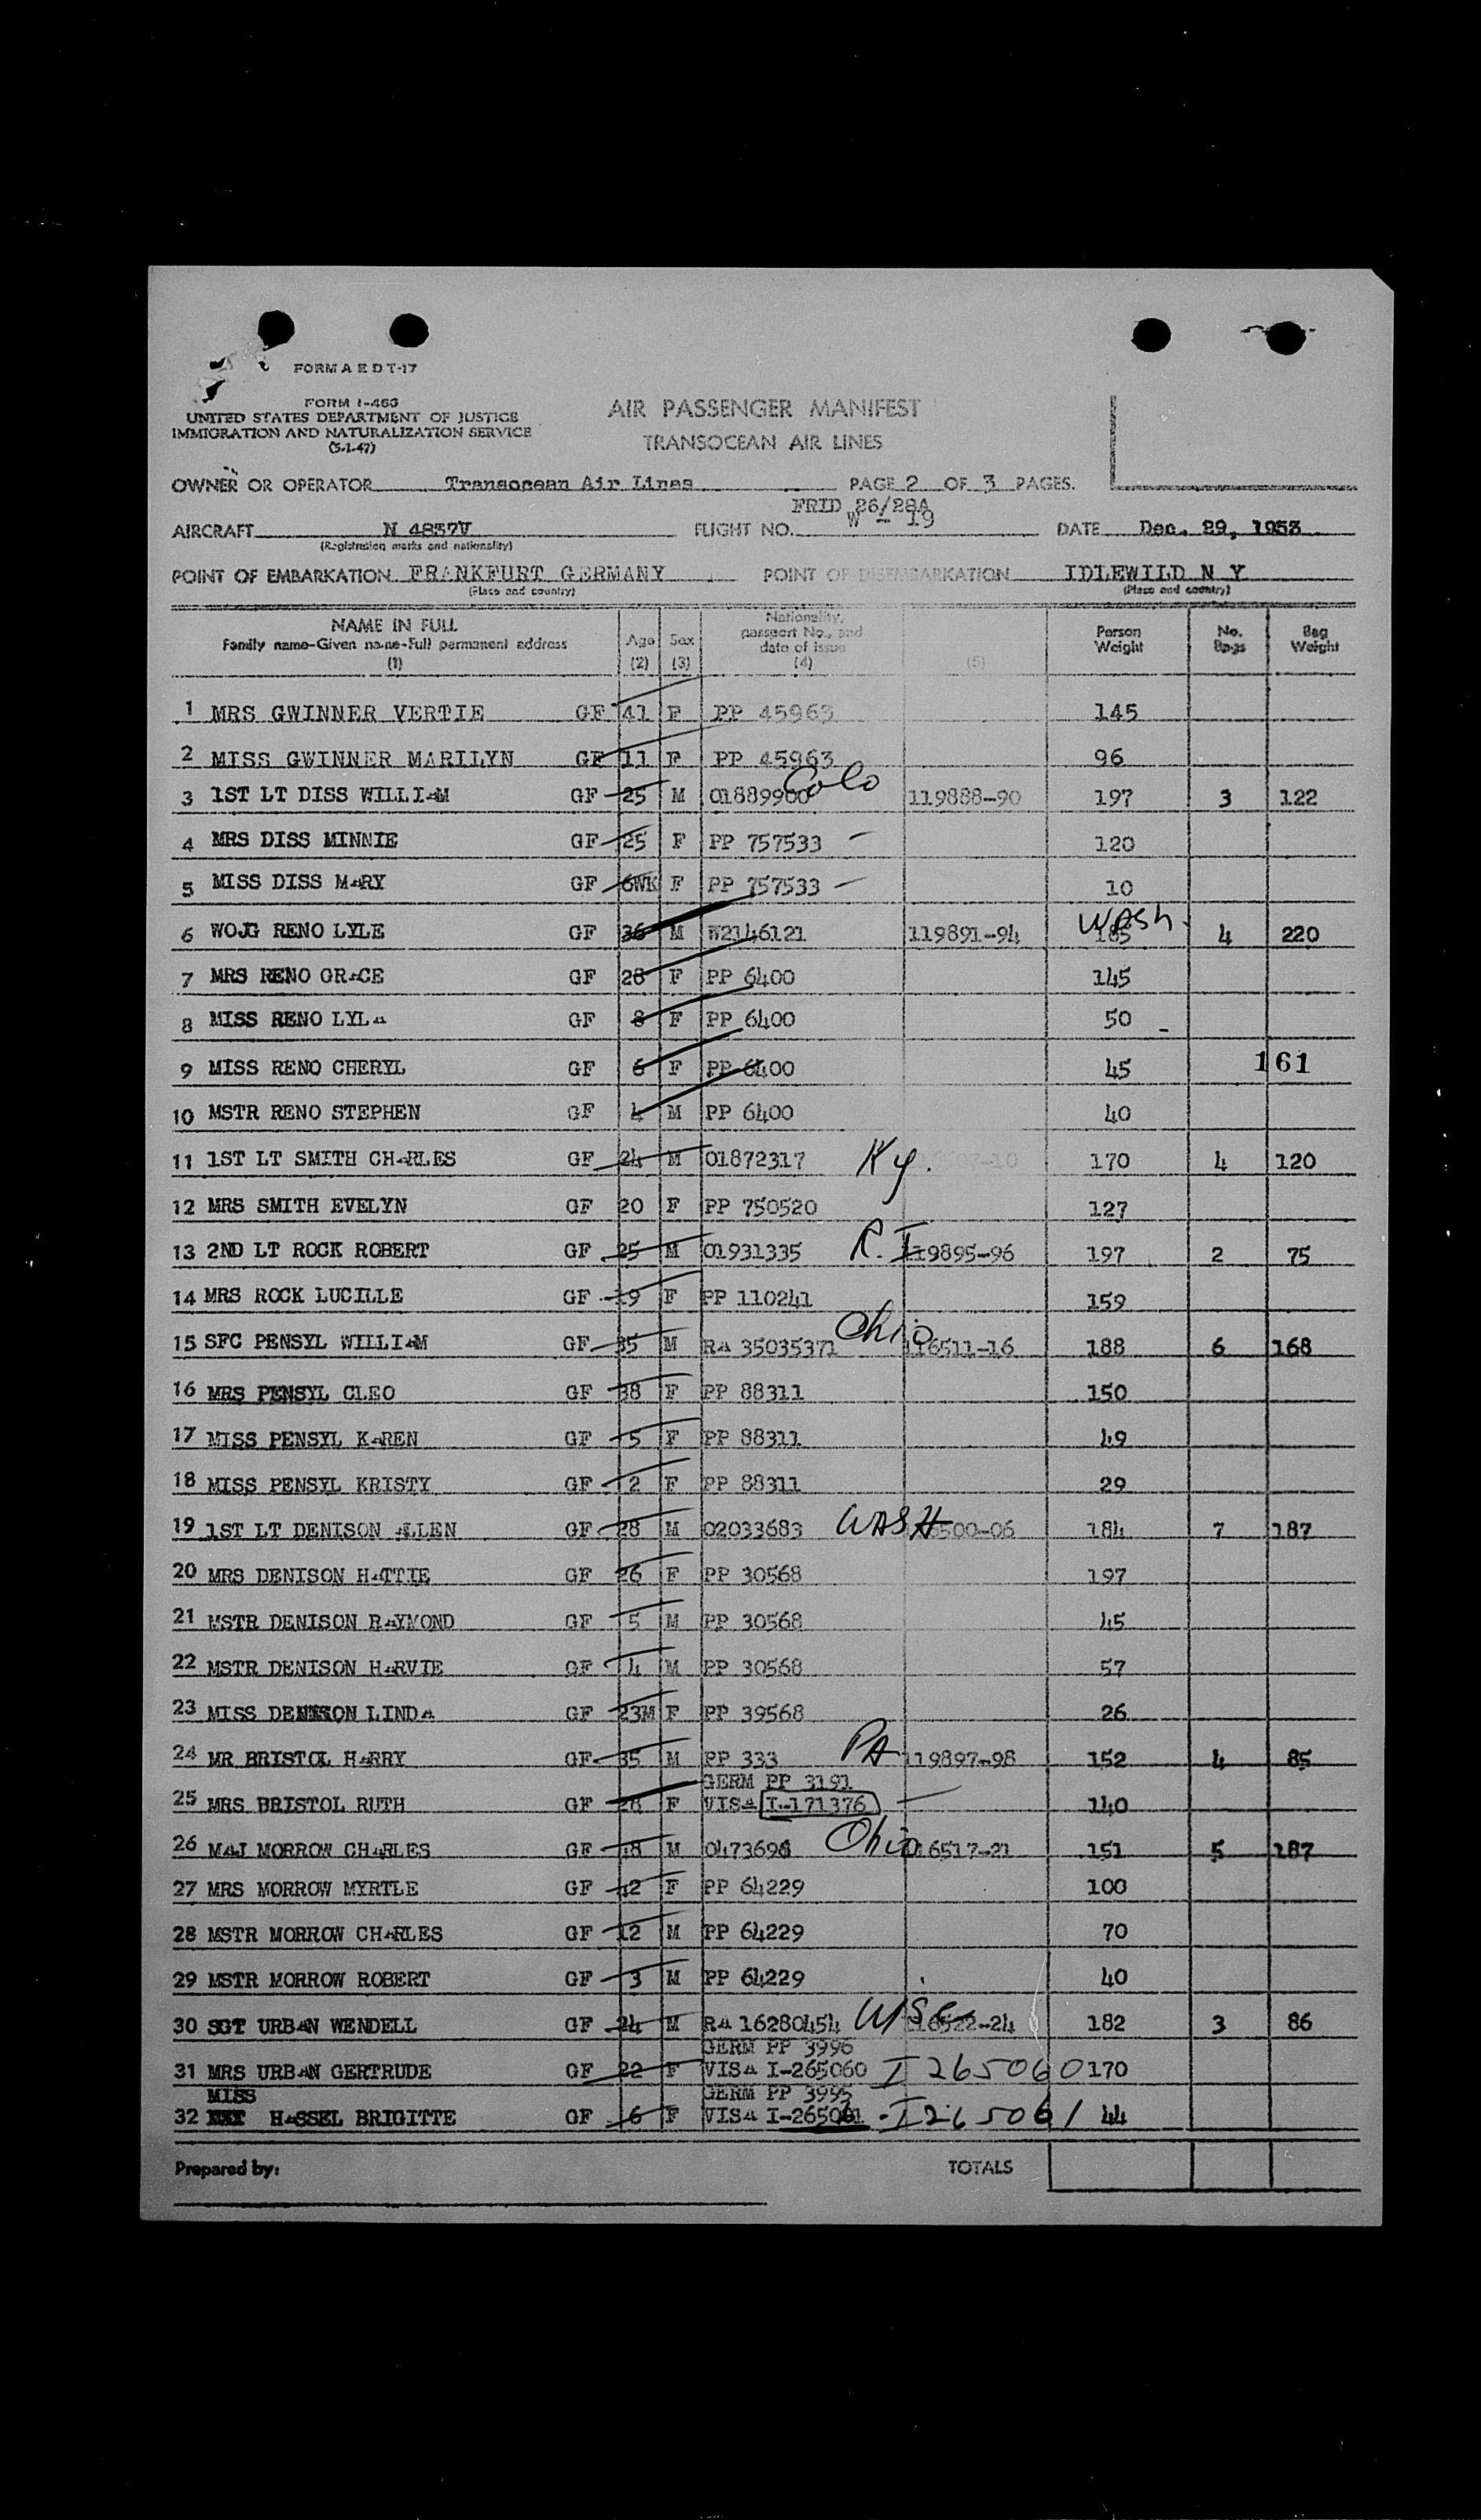 FORM A E D T-17
FORM I-466
UNITED STATES DEPARTMENT OF JUSTICE
IMMIGRATION AND NATURALIZATION SERVICE
(5-1-47)
AIR PASSENGER MANIFEST
TRANSOCEAN AIR LINES
OWNER OR OPERATOR Transocean Air Lines PAGE 2 OF 3 PAGES.
FRID 26/28A
AIRCRAFT N 4837V FLIGHT NO. W - 19 DATE Dec. 29, 1953
(Registration marks and nationality)
POINT OF EMBARKATION FRANKFURT GERMANY POINT OF DISEMBARKATION IDLEWILD N Y
(Place and country) (Place and country)
NAME IN FULL Family name-Given name-Full permanent address (1) Age (2) Sex (3) Nationality, passport No., and date of issue (4) (5) Person Weight No. Bags Bag Weight
1 MRS GWINNER VERTIE GF 41 F PP 45963 145
2 MISS GWINNER MARILYN GF 11 F PP 45963 96
3 1ST LT DISS WILLIAM GF 25 M 01889900 Colo 119888-90 197 3 122
4 MRS DISS MINNIE GF 25 F PP 757533 120
5 MISS DISS MARY GF 6WK F PP 757533 10
6 WOJG RENO LYLE GF 36 M W2146121 119891-94 Wash. 185 4 220
7 MRS RENO GRACE GF 28 F PP 6400 145
8 MISS RENO LYLA GF 8 F PP 6400 50
9 MISS RENO CHERYL GF 6 F PP 6400 45 161
10 MSTR RENO STEPHEN GF 4 M PP 6400 40
11 1ST LT SMITH CHARLES GF 24 M 01872317 Ky. 170 4 120
12 MRS SMITH EVELYN GF 20 F PP 750520 127
13 2ND LT ROCK ROBERT GF 25 M 01931335 R.I 119895-96 197 2 75
14 MRS ROCK LUCILLE GF 19 F PP 110241 159
15 SFC PENSYL WILLIAM GF 35 M RA 35035371 Ohio 116511-16 188 6 168
16 MRS PENSYL CLEO GF 38 F PP 88311 150
17 MISS PENSYL KAREN GF 5 F PP 88311 49
18 MISS PENSYL KRISTY GF 2 F PP 88311 29
19 1ST LT DENISON ALLEN GF 28 M 02033683 WASH 116500-06 184 7 187
20 MRS DENISON HATTIE GF 26 F PP 30568 197
21 MSTR DENISON RAYMOND GF 5 M PP 30568 45
22 MSTR DENISON HARVIE GF 4 M PP 30568 57
23 MISS DENISON LINDA GF 23M F PP 39568 26
24 MR BRISTOL HARRY GF 35 M PP 333 PA 119897-98 152 4 85
GERM PP 3191
25 MRS BRISTOL RUTH GF 28 F VISA I-171376 140
26 MAJ MORROW CHARLES GF 38 M 0473698 Ohio 116517-21 151 5 187
27 MRS MORROW MYRTLE GF 42 F PP 64229 100
28 MSTR MORROW CHARLES GF 12 M PP 64229 70
29 MSTR MORROW ROBERT GF 3 M PP 64229 40
30 SGT URBAN WENDELL GF 24 M RA 16280454 Wisc 116522-24 182 3 86
GERM PP 3996
31 MRS URBAN GERTRUDE GF 22 F VISA I-265060 I 265060 170
MISS GERM PP 3995
32 HASSEL BRIGITTE GF 6 F VISA I-265061 - I 265061 44
Prepared by: TOTALS